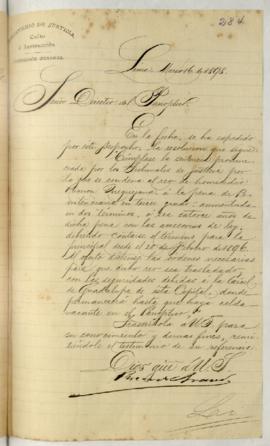 284
MINISTERIO DE JUSTICIA
CULTO
É INSTRUCCIÓN
Lima, Marzo 16 de 1898.
Señor Director del Panóptico.
En la fecha, se ha expedido
por este Despacho la resolución que sigue:
"Cúmplase la sentencia pronun-
ciada por los Tribunales de Justicia por
la que se condena al reo de homicidio
Ramon á la pena de Pe-
nitenciaria en tercer grado, aumentada
en dos términos, ó sea catorce años de
dicha pena con las accesorias de ley,
debiendo contarse el término para la
principal desde el 25 de de 1896.
Al efecto las órdenes necesarias
para que dicho reo sea trasladado
con las seguridades debidas á la Cárcel
de Guadalupe de esta Capital, donde
permanecerá hasta que haya celda
vacante en el Panóptico".
Trascríbola á US. para
su conocimiento y demas fines, remi-
tiéndole el testimonio de su referencia.
Dios gue. á US.